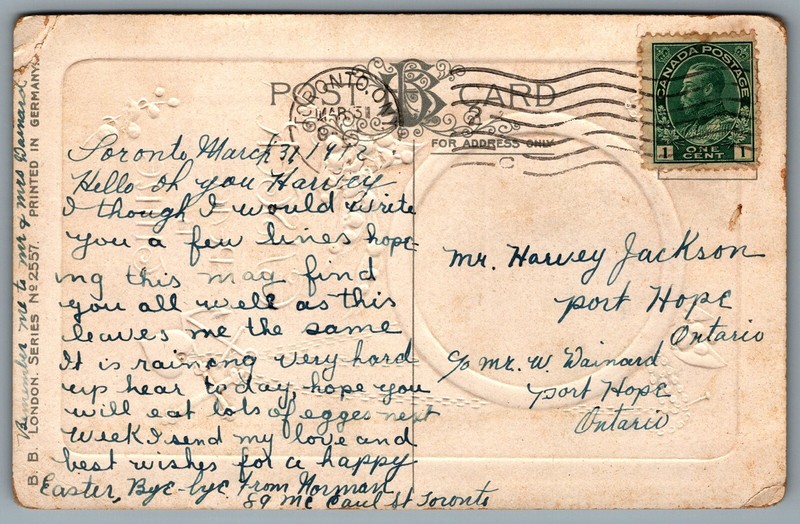 POST CARD
FOR ADDRESS ONLY
TORONTO, ONT.
MAR 31
CANADA POSTAGE
1 ONE CENT 1
Toronto March 31 1912
Hello Oh you Harvey
I though I would write
you a few lines hope-
ing this may find
you all well as this
leaves me the same
It is raining very hard
up hear to day, hope you
will eat lots of egges next
week I send my love and
best wishes for a happy
Easter, Bye-bye From Norman
89 Mc Caul st Toronto
Mr. Harvey Jackson
Port Hope
Ontario
c/o Mr. W. Dainard
Port Hope
Ontario
Remember me to mr & mrs Dainard
B. B. LONDON. SERIES No 2557. PRINTED IN GERMANY.